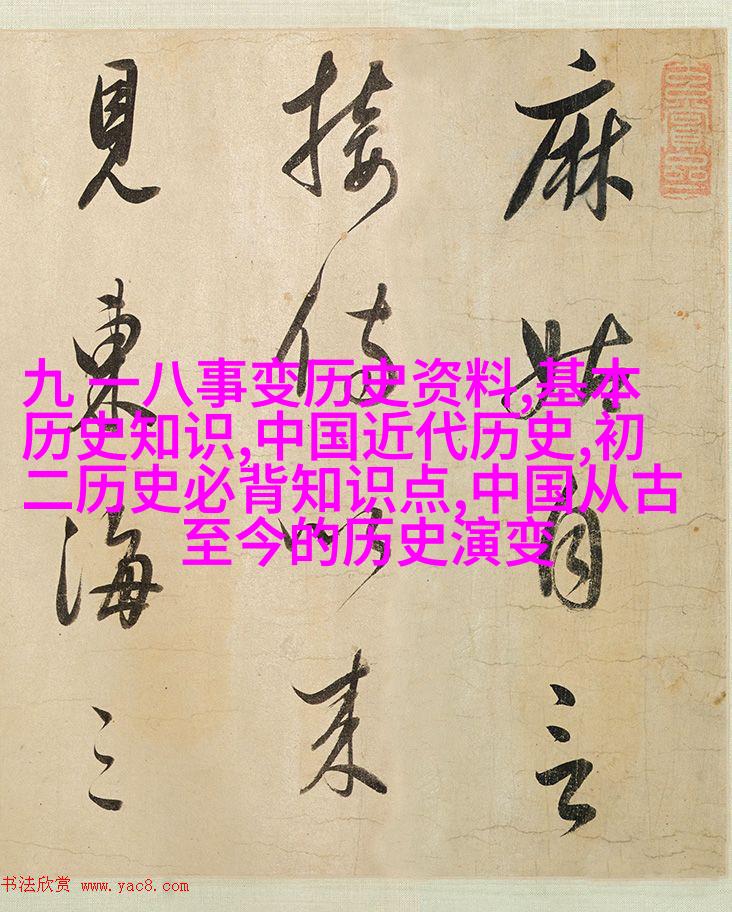 麻姑自言
接侍以來
見東海三
九 一八事变历史资料,基本
历史知识,中国近代历史,初
二历史必背知识点,中国从古
至今的历史演变
书法欣赏 www.yac8.com